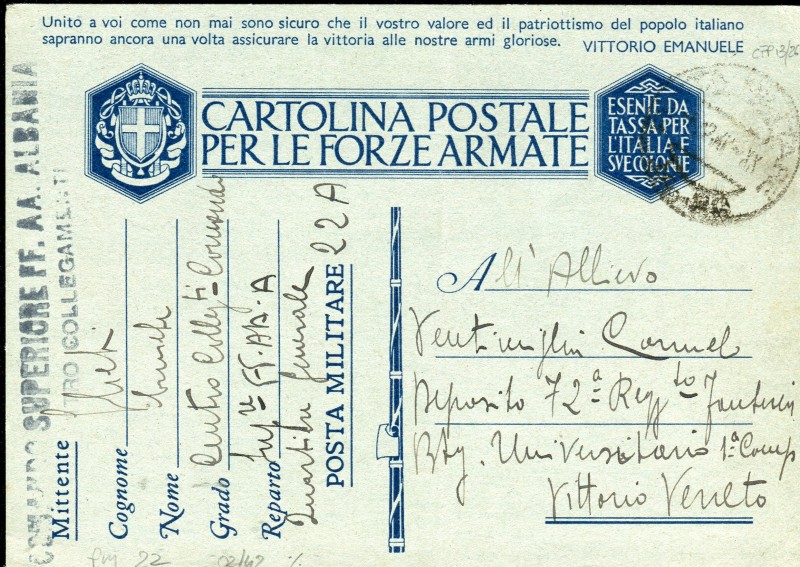 Unito a voi come non mai sono sicuro che il vostro valore ed il patriottismo del popolo italiano
sapranno ancora una volta assicurare la vittoria alle nostre armi gloriose. VITTORIO EMANUELE
CARTOLINA POSTALE
PER LE FORZE ARMATE
ESENTE DA
TASSA PER
L'ITALIA
SVE COLONIE
COMANDO SUPERIORE FF. AA. ALBANIA
COLLEGAMENTI
Mittente
Cognome
Nome
Grado Centro Colleg.ti Comando
Reparto Sup.re FF.AA. A
Quartier Generale
POSTA MILITARE 22 A
All' Allievo
Ventimiglia Carmel
Deposito 72ª Regg.to Fanteria
Btg. Universitario 1ª Comp
Vittorio Veneto
pm 22
02/42